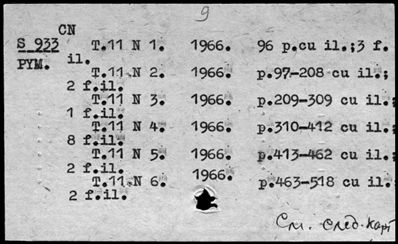 9
CN
S 933 T.11 N 1. 1966. 96 p.cu il.;3 f.
РУМ. il.
T.11 N 2. 1966. p.97-208 cu il.;
2 f.il.
T.11 N 3. 1966. p.209-309 cu il.;
1 f.il.
T.11 N 4. 1966. p.310-412 cu il.;
8 f.il.
T.11 N 5. 1966. p.413-462 cu il.;
2 f.il.
T.11 N 6. 1966. p.463-518 cu il.;
2 f.il.
См. след. карт